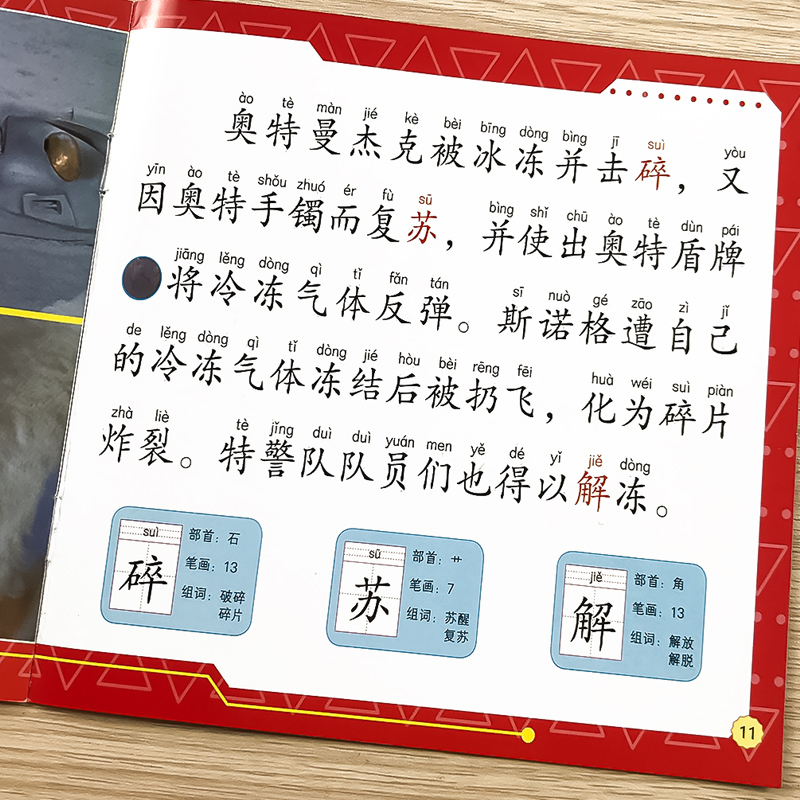 ào tè màn jié kè bèi bīng dòng bìng jī suì yòu
奥特曼杰克被冰冻并击碎，又
yīn ào tè shǒu zhuó ér fù sū bìng shǐ chū ào tè dùn pái
因奥特手镯而复苏，并使出奥特盾牌
jiāng lěng dòng qì tǐ fǎn tán sī nuò gé zāo zì jǐ
将冷冻气体反弹。斯诺格遭自己
de lěng dòng qì tǐ dòng jié hòu bèi rēng fēi huà wéi suì piàn
的冷冻气体冻结后被扔飞，化为碎片
zhà liè tè jǐng duì duì yuán men yě dé yǐ jiě dòng
炸裂。特警队队员们也得以解冻。
suì
碎
部首：石
笔画：13
组词：破碎
碎片
sū
苏
部首：艹
笔画：7
组词：苏醒
复苏
jiě
解
部首：角
笔画：13
组词：解放
解脱
11